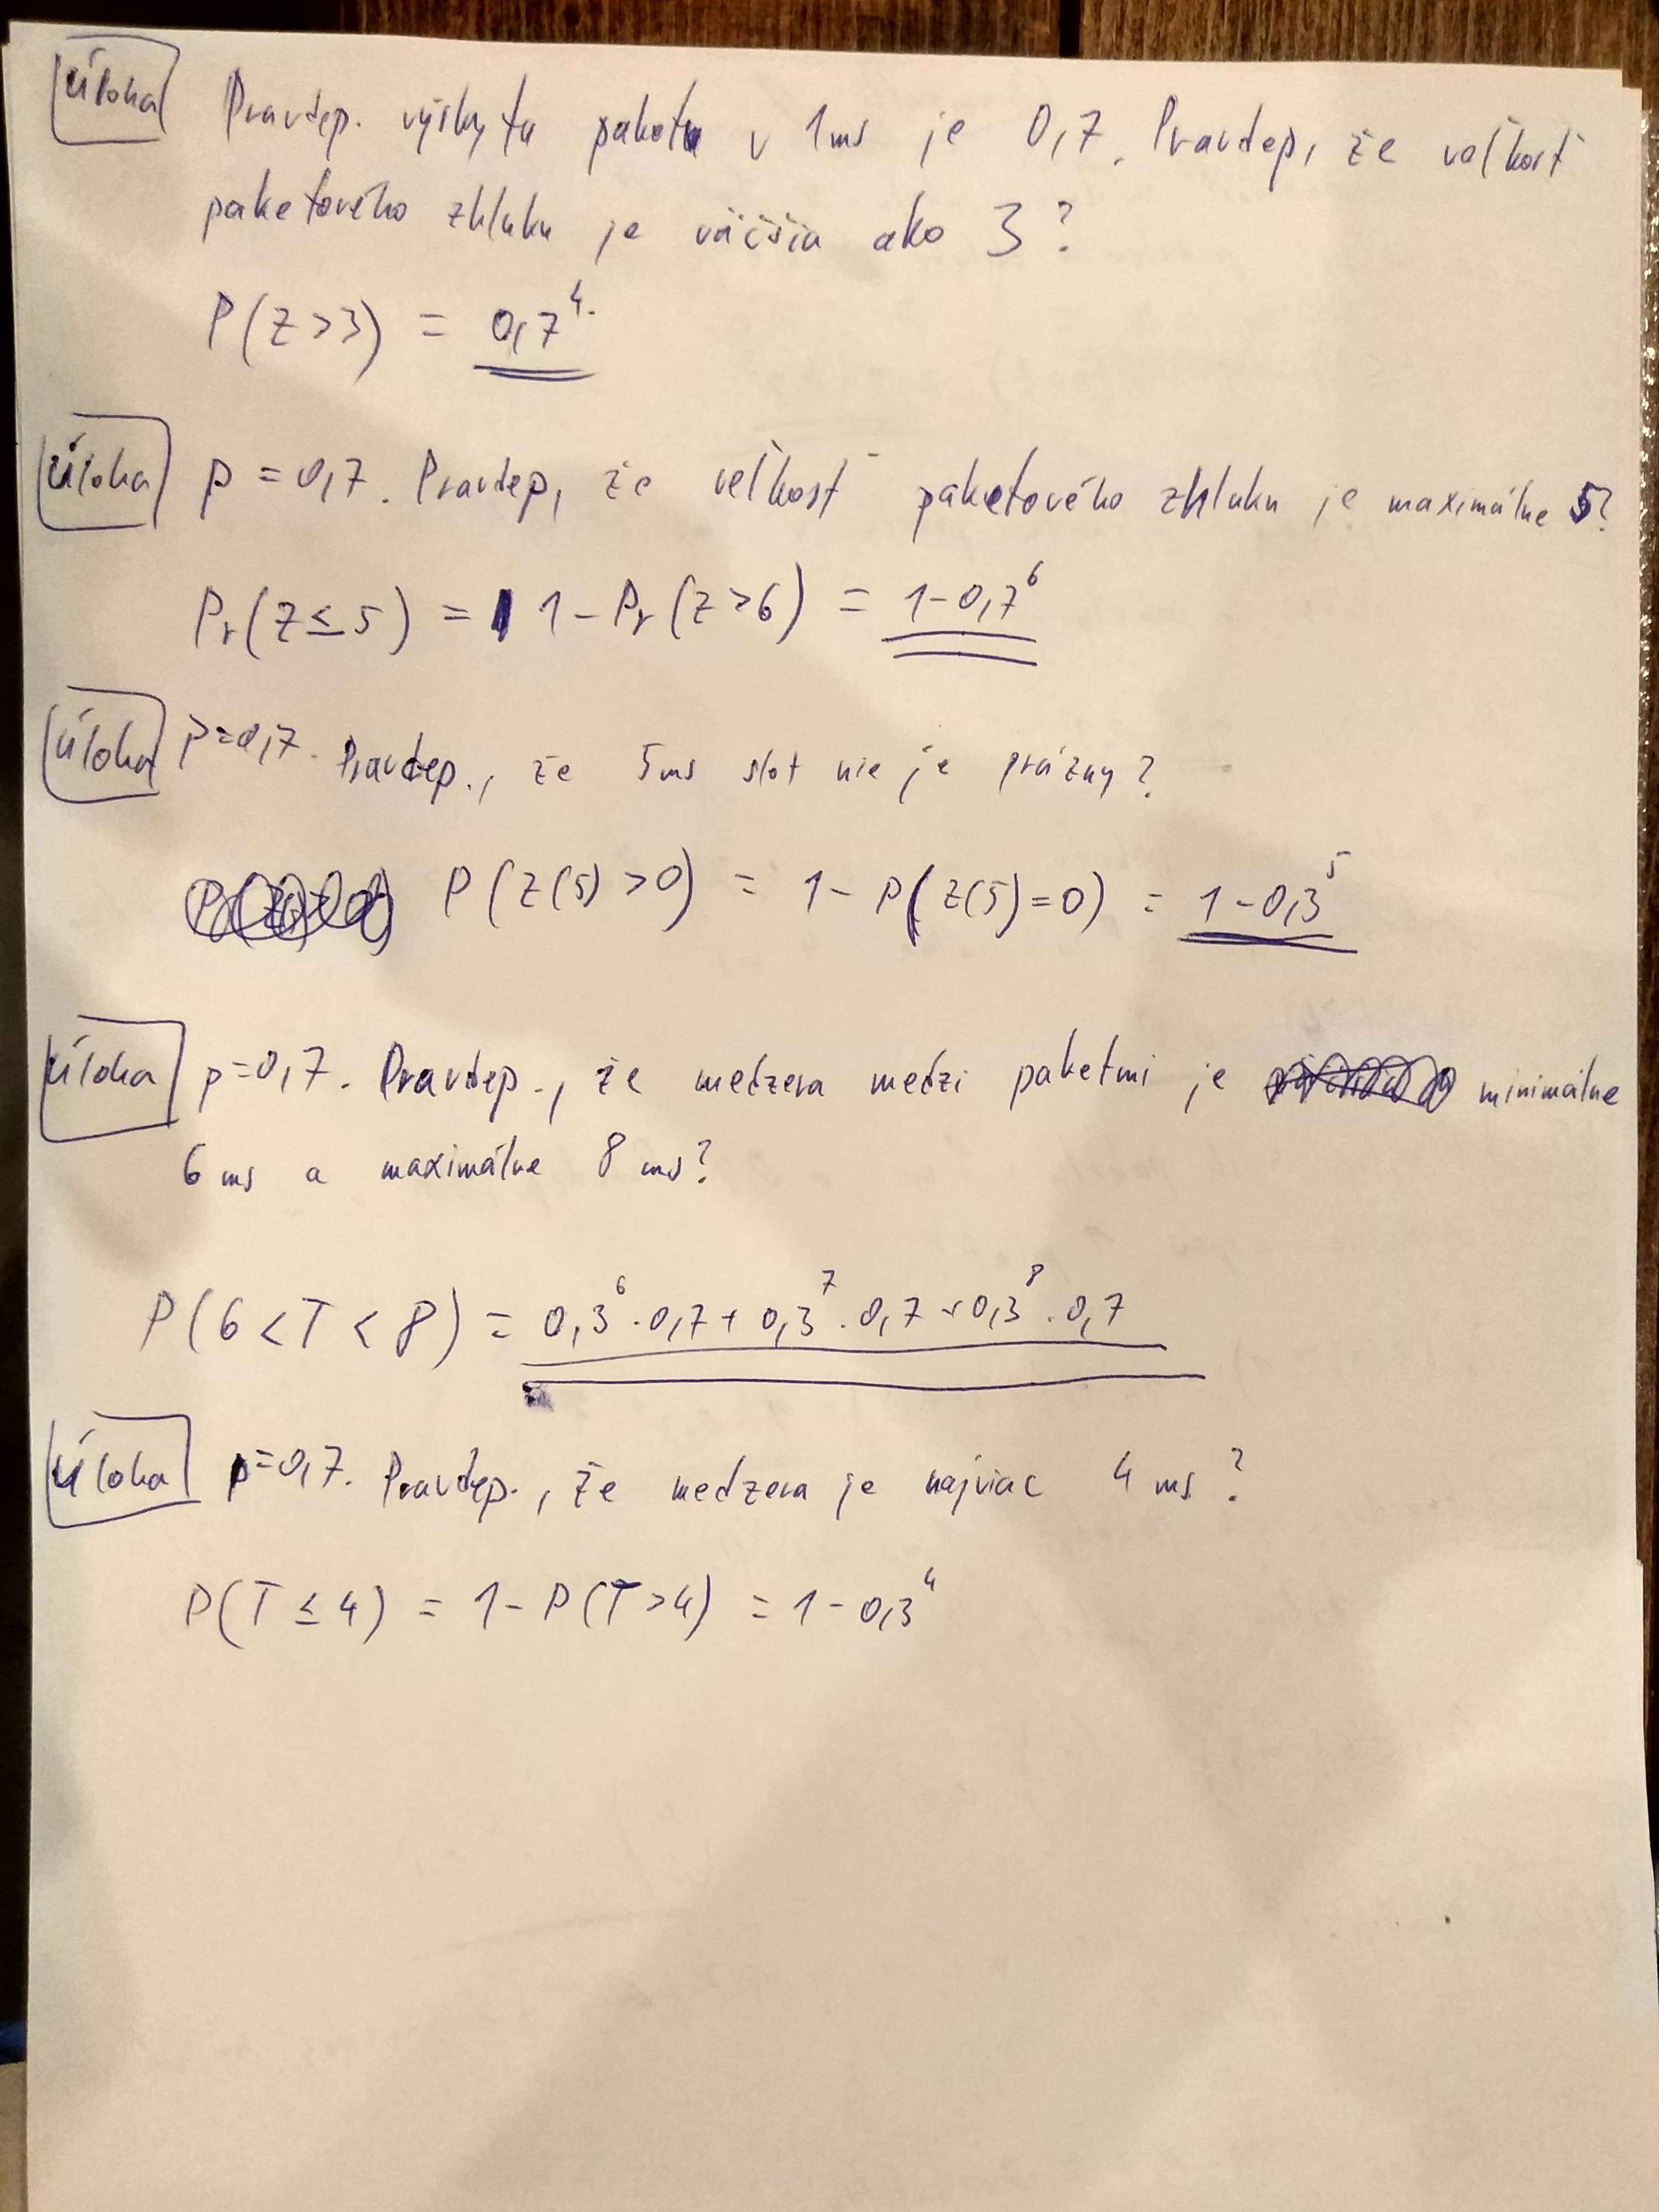 Úloha Pravdep. výskytu paketu v 1ms je 0,7. Pravdep, že veľkosť
paketového zhluku je väčšia ako 3?
P(Z>3) = 0,7⁴
Úloha p = 0,7. Pravdep, že veľkosť paketového zhluku je maximálne 5?
Pr(Z≤5) = 1-Pr(Z>6) = 1-0,7⁶
Úloha p=0,7. Pravdep., že 5ms slot nie je prázny?
P(Z(5)>0) = 1-P(Z(5)=0) = 1-0,3⁵
Úloha p=0,7. Pravdep., že medzera medzi paketmi je minimálne
6 ms a maximálne 8 ms?
P(6<T<8) = 0,3⁶·0,7+0,3⁷·0,7+0,3⁸·0,7
Úloha p=0,7. Pravdep., že medzera je najviac 4 ms?
P(T≤4) = 1-P(T>4) = 1-0,3⁴